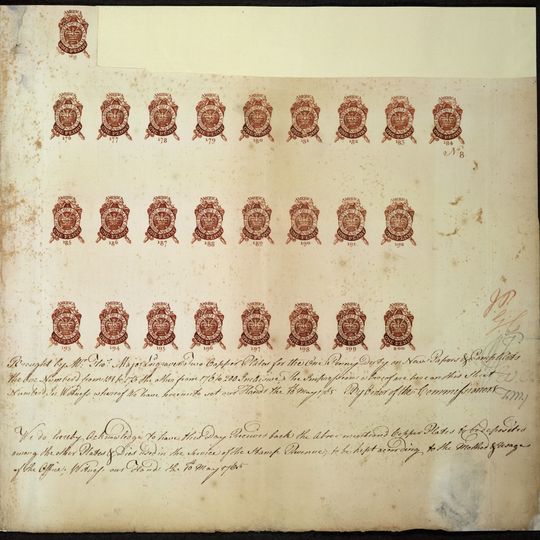 AMERICA
AMERICA AMERICA AMERICA AMERICA AMERICA AMERICA AMERICA AMERICA AMERICA
176 177 178 179 180 181 182 183 184
No. 8
AMERICA AMERICA AMERICA AMERICA AMERICA AMERICA AMERICA AMERICA
185 186 187 188 189 190 191 192
AMERICA AMERICA AMERICA AMERICA AMERICA AMERICA AMERICA AMERICA
193 194 195 196 197 198 199
Brought by Mr. Thos. Major Engraver Copper Plates for the One Penny Duty on News Papers & Pamphlets
the One Numbered from to the other from
Number'd. In Witness whereof we have hereunto set our Hands the 10 May 1765 By Order of the Commissioners
We do hereby Acknowledge to have this Day Received back the Above mentioned Copper Plates to be deposited
among the other Plates & Dies used in the Service of the Stamp Revenue, to be kept according to the Method & usage
of the Office. Witness our Hands the 10th May 1765